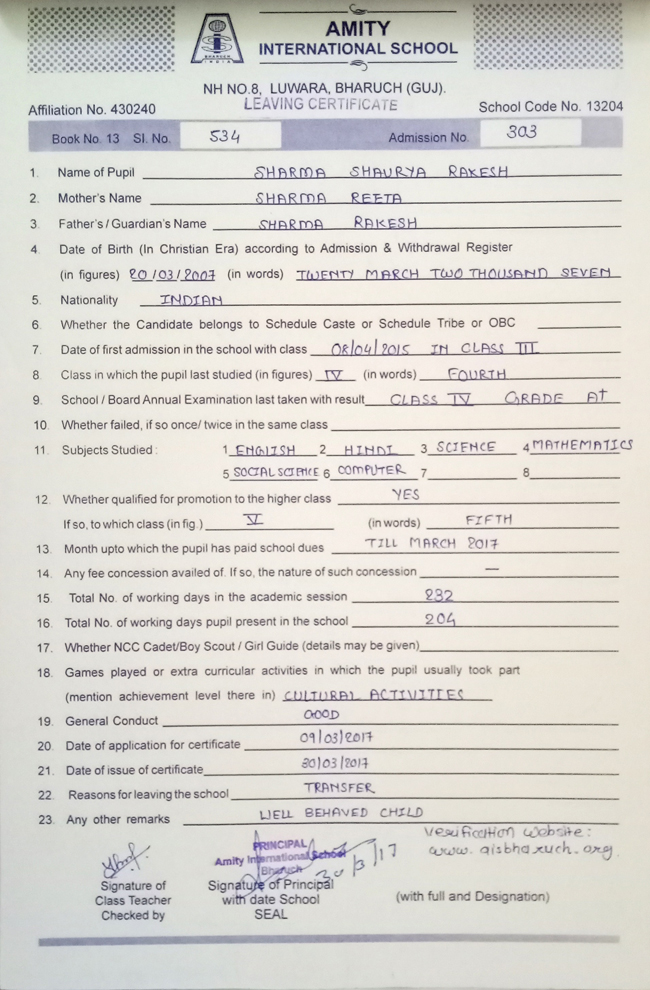 AMITY
INTERNATIONAL SCHOOL
BHARUCH
INDIA
NH NO.8, LUWARA, BHARUCH (GUJ).
LEAVING CERTIFICATE
Affiliation No. 430240 School Code No. 13204
Book No. 13 Sl. No. 534 Admission No. 303
1. Name of Pupil SHARMA SHAURYA RAKESH
2. Mother's Name SHARMA REETA
3 Father's / Guardian's Name SHARMA RAKESH
4. Date of Birth (In Christian Era) according to Admission & Withdrawal Register
(in figures) 20/03/2007 (in words) TWENTY MARCH TWO THOUSAND SEVEN
5. Nationality INDIAN
6. Whether the Candidate belongs to Schedule Caste or Schedule Tribe or OBC
7. Date of first admission in the school with class 08/04/2015 IN CLASS III
8 Class in which the pupil last studied (in figures) IV (in words) FOURTH
9. School / Board Annual Examination last taken with result CLASS IV GRADE A+
10. Whether failed, if so once/ twice in the same class
11. Subjects Studied : 1 ENGLISH 2 HINDI 3 SCIENCE 4 MATHEMATICS
5 SOCIAL SCIENCE 6 COMPUTER 7 8
12. Whether qualified for promotion to the higher class YES
If so, to which class (in fig.) V (in words) FIFTH
13. Month upto which the pupil has paid school dues TILL MARCH 2017
14. Any fee concession availed of. If so, the nature of such concession —
15. Total No. of working days in the academic session 232
16. Total No. of working days pupil present in the school 204
17. Whether NCC Cadet/Boy Scout / Girl Guide (details may be given)
18. Games played or extra curricular activities in which the pupil usually took part
(mention achievement level there in) CULTURAL ACTIVITIES
19. General Conduct GOOD
20. Date of application for certificate 09/03/2017
21. Date of issue of certificate 30/03/2017
22. Reasons for leaving the school TRANSFER
23. Any other remarks WELL BEHAVED CHILD
Verification website:
www.aisbharuch.org.
PRINCIPAL
Amity International School
Bharuch
30/3/17
Signature of Class Teacher Checked by
Signature of Principal with date School SEAL
(with full and Designation)